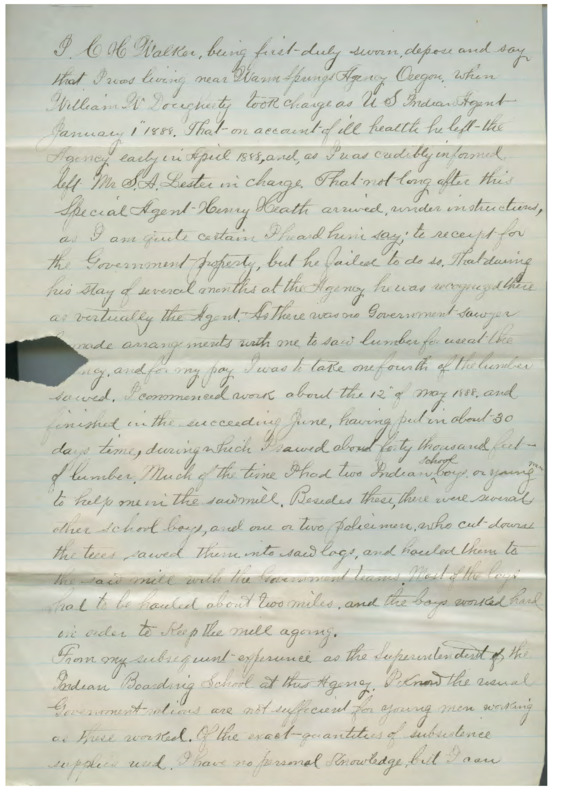 I, C H Walker, being first duly sworn, depose and say
that I was living near Warm Springs Agency Oregon, when
William W Dougherty took charge as U S Indian Agent
January 1st 1888. That on account of ill health he left the
Agency early in April 1888, and, as I was credibly informed
left Mr S. A. Lester in charge. That not long after this
Special Agent Henry Heath arrived, under instructions,
as I am quite certain I heard him say; to receipt for
the Government property, but he failed to do so. That during
his stay of several months at the Agency he was recognized there
as virtually the Agent. As there was no Government sawyer
made arrangements with me to saw lumber for use at the
ncy, and for my pay I was to take one fourth of the lumber
sawed. I commenced work about the 12" of May 1888. and
finished in the succeeding June, having put in about 30
days time, during which I sawed about forty thousand feet
of lumber. Much of the time I had two Indian school boys, or young
to help me in the sawmill. Besides these, there were several
other school boys, and one or two policemen, who cut down
the trees sawed them into saw logs, and hauled them to
the saw mill with the Government teams. Most of the logs
had to be hauled about two miles, and the boys worked hard
in order to keep the mill agoing.
From my subsequent experience as the Superintendent of the
Indian Boarding School at this Agency, I know the usual
Government rations are not sufficient for young men working
as these worked. Of the exact quantities of subsistence
supplies used, I have no personal knowledge, but I can